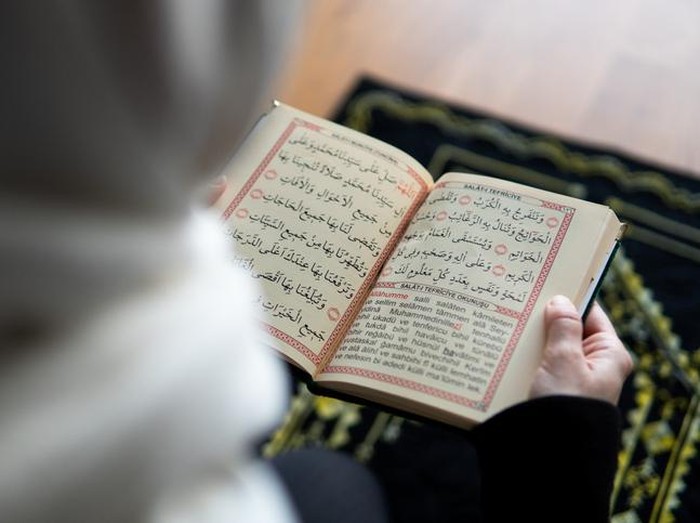 SALÂT-I TEFRİCİYE
وَتَنْفَرِجُ بِهِ الْكُرَبُ وَتُقْضٰى
الْحَوَائِجُ وَتُنَالُ بِهِ الرَّغَائِبُ وَحُسْنُ
الْخَوَاتِيمِ وَيُسْتَسْقَى الْغَمَامُ بِوَجْهِهِ
الْكَرِيمِ وَعَلٰى اٰلِهِ وَصَحْبِهِ فِى كُلِّ
لَمْحَةٍ وَنَفَسٍ بِعَدَدِ كُلِّ مَعْلُومٍ لَكَ
SALÂT-I TEFRİCİYE OKUNUŞU
salli salâten kâmileten
ve sellim selâmen tâmmen alâ Sey-
Muhammedinillezî
bihil ukadü ve tenfericu bihil kürebü
ve tukdâ bihil havâicu ve tünâlü
bihir regâibü ve hüsnül havâtimi ve
yusteskal ğamâmu bivechihil Kerîm
ve alâ âlihî ve sahbihî fî külli lemhatin
ve nefesin bi adedi külli ma'lûmin lek.
صَلِّ عَلٰى سَيِّدِنَا مُحَمَّدٍ وَعَلٰى
سَيِّدِنَا مُحَمَّدٍ صَلَاةً تُنْجِينَا بِهَا
مِنْ جَمِيعِ الْاَهْوَالِ وَالْاٰفَاتِ
وَتَقْضِى لَنَا بِهَا جَمِيعَ الْحَاجَاتِ
وَتُطَهِّرُنَا بِهَا مِنْ جَمِيعِ السَّيِّئَاتِ
وَتَرْفَعُنَا بِهَا عِنْدَكَ اَعْلَى الدَّرَجَاتِ
وَتُبَلِّغُنَا بِهَا اَقْصَى
جَمِيعِ الْخَيْرَاتِ